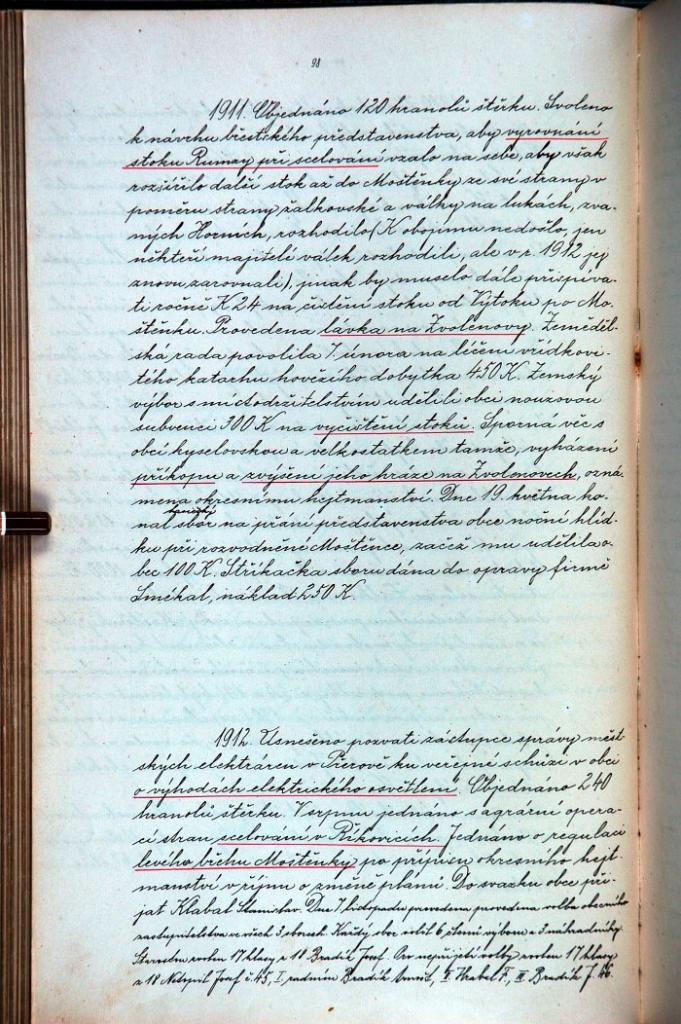 98
1911. Objednáno 120 hranolů štěrku. Svoleno
k návrhu břestského představenstva, aby vyrovnání
stoku Rumay při scelování vzalo na sebe, aby však
rozšířilo další stok až do Moštěnky ze své strany v
poměru strany žalkovské a války na lukách, zva-
ných Horních, rozhodilo (K obojímu nedošlo, jen
někteří majitelé válek rozhodili, ale v r. 1912 jej
znovu zarovnali), jinak by muselo dále přispíva-
ti ročně K 24 na čistění stoku od Výtoku po Mo-
štěnku. Provedena lávka na Zvolenovy. Zeměděl-
ská rada povolila 7. února na léčení vřídkovi-
tého katarhu hovězího dobytka 450 K. Zemský
výbor s místodržitelstvím udělili obci nouzovou
subvenci 300 K na vycistění stoků. Sporná věc s
obcí kyselovskou a velkostatkem tamže, vyházení
příkopu a zvýšení jeho hráze na Zvolenovech, ozná-
mena okresnímu hejtmanství. Dne 19. května ko-
hasičský
nal sbor na přání představenstva obce noční hlíd-
ku při rozvodněné Moštěnce, začež mu udělila o-
bec 100 K. Stříkačka sboru dána do opravy firmě
Smékal, náklad 250 K.
1912. Usnešeno pozvati zástupce správy měst-
ských elektráren v Přerově ku veřejné schůzi v obci
o výhodách elektrického osvětlení. Objednáno 240
hranolů štěrku. V srpnu jednáno s agrární opera-
cí stran scelování v Říkovicích. Jednáno o regulaci
levého břehu Moštěnky po přípisu okresního hejt-
manství v říjnu o změně plánů. Do svazku obce při-
jat Klabal Stanislav. Dne 7 listopadu provedena provedena volba obecního
zastupitelstva ve všech 3 sborech. Každý sbor volil 6 členů výboru a 3 náhradníky.
Starostou zvolen 17 hlasy z 18 Bradík Josef. Pro nepřijetí volby zvolen 17 hlasy
z 18 Netopil Josef č. 45, I. radním Bradík Arnošt, II Hrabal F., III Bradík J. 46.